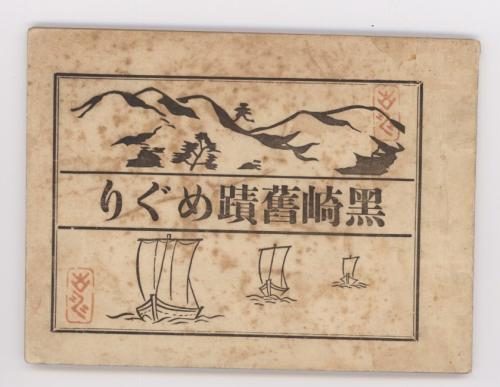 黑崎舊蹟めぐり